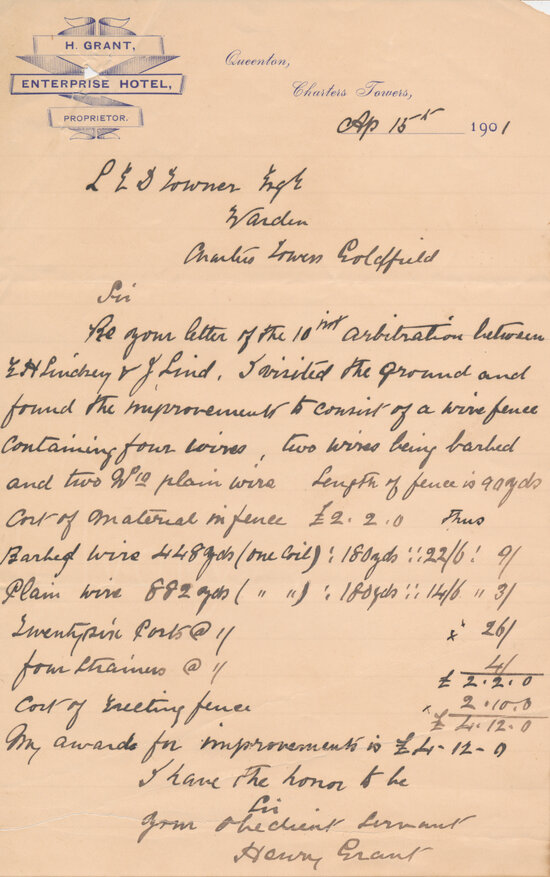 H. GRANT,
ENTERPRISE HOTEL,
PROPRIETOR.
Queenton,
Charters Towers,
Ap 15th 1901
L E D Towner Esqe
Warden
Charters Towers Goldfield
Sir
Re your letter of the 10 inst arbitration between
E H Lindsey & J Lind. I visited the ground and
found the improvements to consist of a wire fence
containing four wires, two wires being barbed
and two No 10 plain wire Length of fence is 90 yds
Cost of Material in fence £2.2.0 Thus
Barbed wire 448 yds (one Coil) : 180 yds :: 22/6 : 9/
Plain wire 882 yds ( " " ) : 180 yds :: 14/6 " 3/
Twenty six Posts @ 1/ 26/
four Strainers @ 1/ 4/
£ 2.2.0
Cost of Erecting fence 2.10.0
£ 4.12.0
My award for improvements is £4-12-0
I have the honor to be
Sir
your obedient Servant
Henry Grant